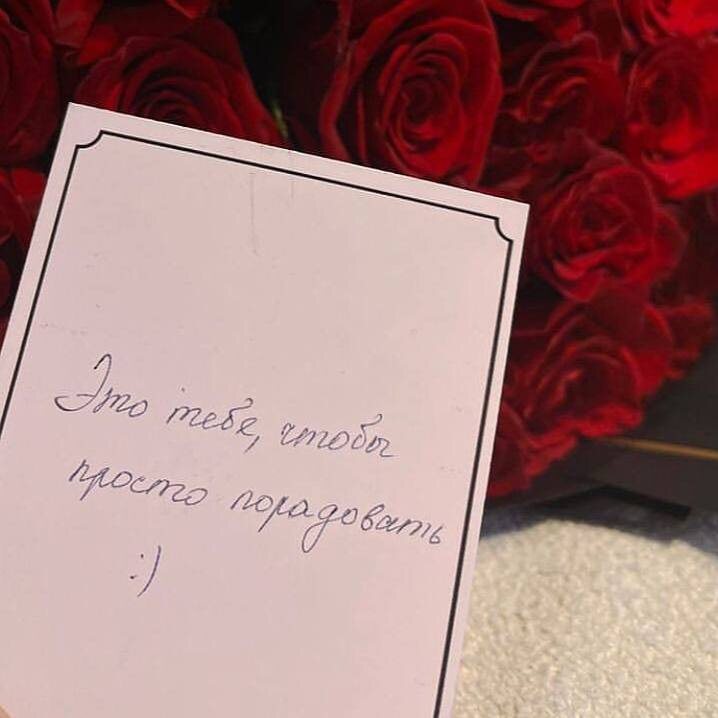 Это тебе, чтобы
просто порадовать
:)